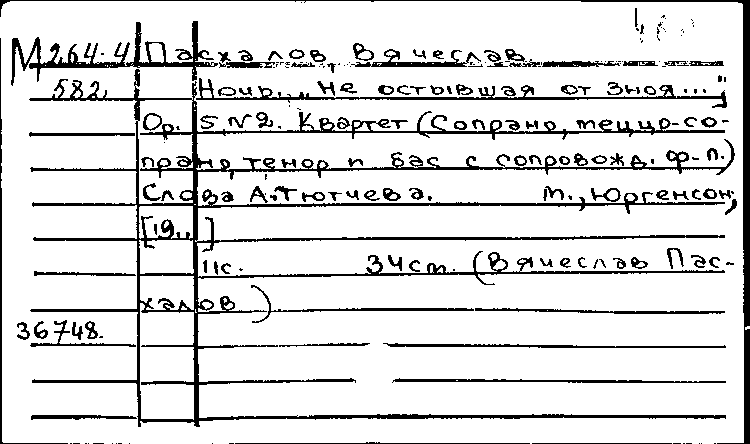 М 264-4 Пасхалов, Вячеслав
582. Ночь. „Не остывшая от зноя...";
Op. 5, N2. Квартет (Сопрано, меццо-со-
прано, тенор и бас с сопровожд. ф-п.)
Слова А. Тютчева. М., Юргенсон,
[19..]
11с. 34 cm. (Вячеслав Пас-
халов)
36748.